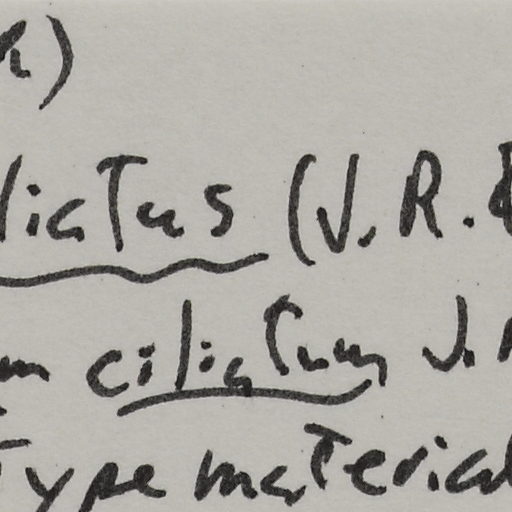 liatus (J.R.
m ciliatum J.
Type material